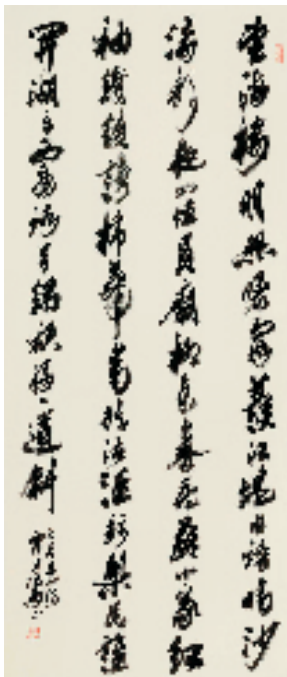 望海樓明照曙霞護江堤白踏晴沙
濤聲夜入伍員廟柳色春藏蘇小家紅
袖織綾誇柿蒂青旗沽酒趁梨花誰
開湖寺西南路草綠裙腰一道斜